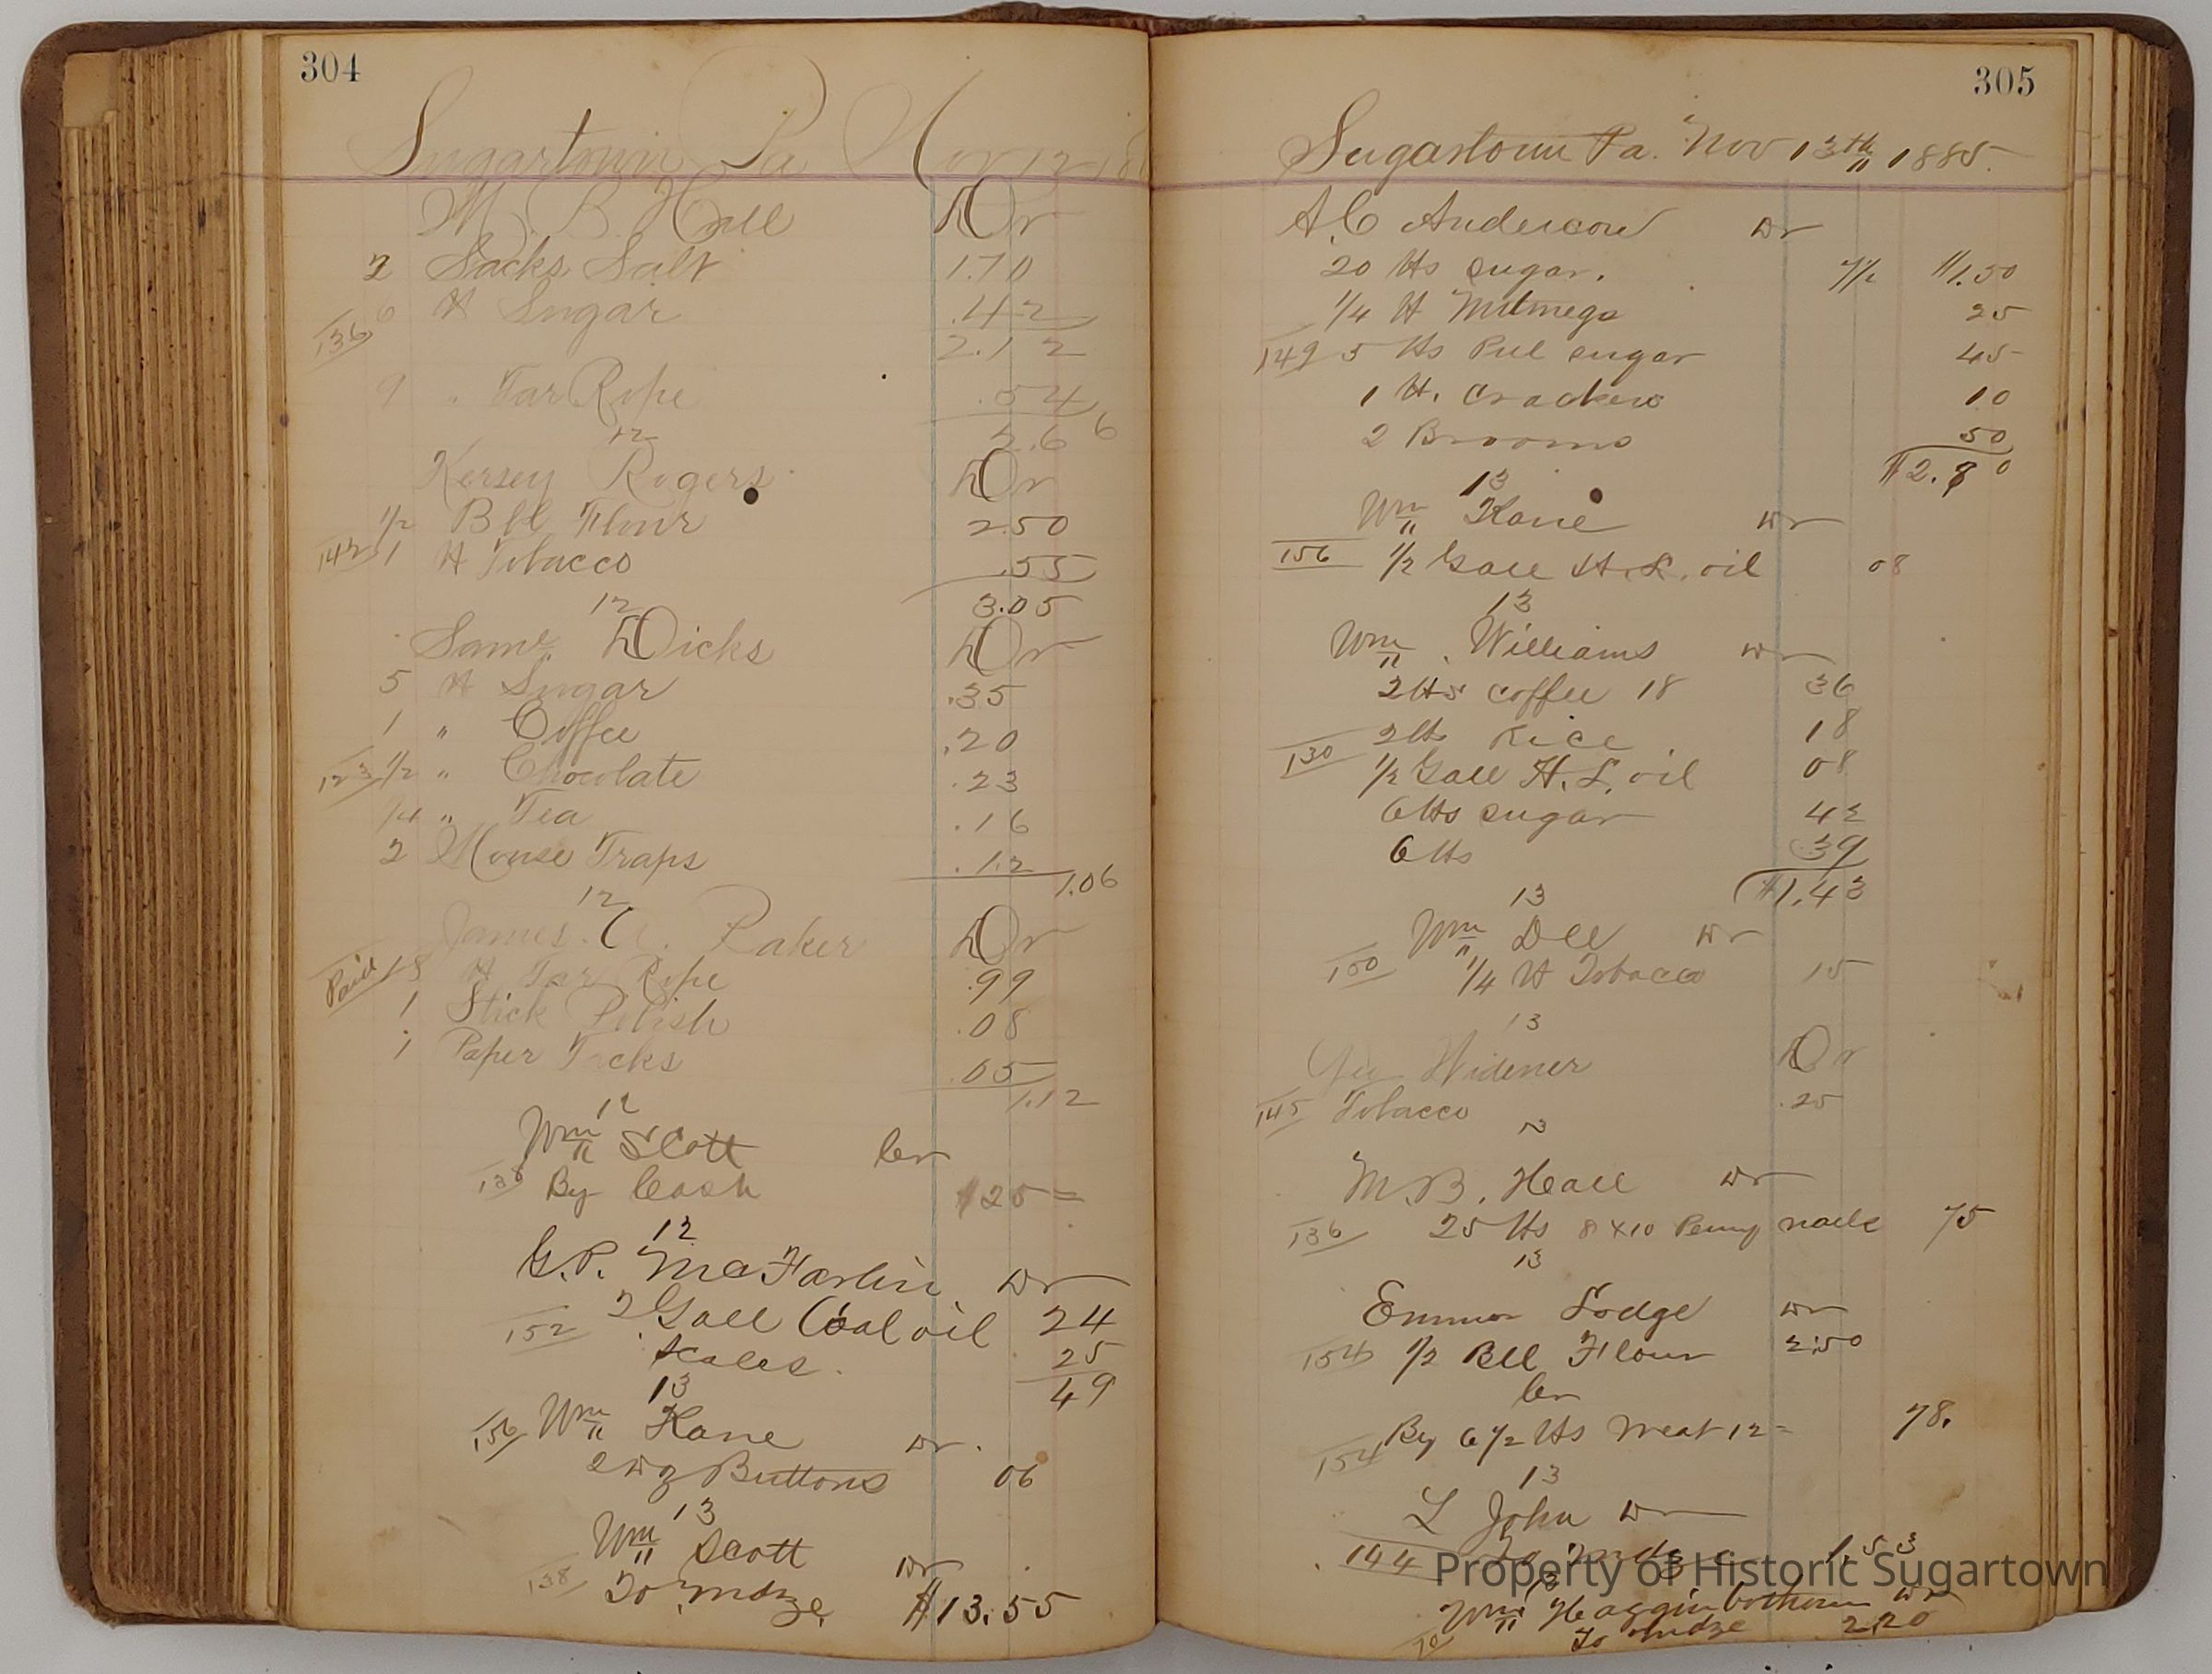 304
Sugartown Pa Nov 12 18
M. B. Hall Dr
2 Sacks Salt 1.70
136 6 lb Sugar .42
2.12
9 " Tar Rope .54
2.66
12
Kersey Rogers Dr
1/2 Bbl Flour 2.50
142 1 lb Tobacco .55
3.05
12
Saml Dicks Dr
5 lb Sugar .35
1 " Coffee .20
123 1/2 " Chocolate .23
1/4 " Tea .16
2 Mouse Traps .12
1.06
12
James. A. Baker Dr
Paid 18 lb Tar Rope .99
1 Stick Polish .08
1 Paper Tacks .05
1.12
12
Wm Scott Cr
138 By Cash $25=
12
G.P. McFarlin Dr
152 2 Gall Coal oil 24
Scales. 25
49
13
156 Wm Kane Dr.
2 Dz Buttons 06
13
Wm Scott Dr
138 To Mdze $13.55
305
Sugartown Pa. Nov 13th 1885.
A.C Anderson Dr
20 lbs sugar. 7 1/2 $1.50
1/4 lb Nutmegs 25
149 5 lbs Pul sugar 45
1 lb. Crackers 10
2 Brooms 50
$2.80
13
Wm Kane Dr
156 1/2 Gall H.L. oil 08
13
Wm. Williams Dr
2 lbs coffee 18 36
2 lb Rice 18
130 1/2 Gall H.L. oil 08
6 lbs sugar 42
6 lbs 39
$1.43
13
Wm Dell Dr
150 1/4 lb Tobacco 15
13
Widener Dr
145 Tobacco .25
13
M.B. Hall Dr
136 25 lbs 8 x 10 Penny nails 75
13
Emmor Lodge Dr
154 1/2 Bll Flour 2.50
Cr
154 By 6 1/2 lbs Meat 12= 78.
13
L John Dr
144 To Mdze 1.53
13
Wm Hagginbothum Dr
To Mdze 2.20
Property of Historic Sugartown